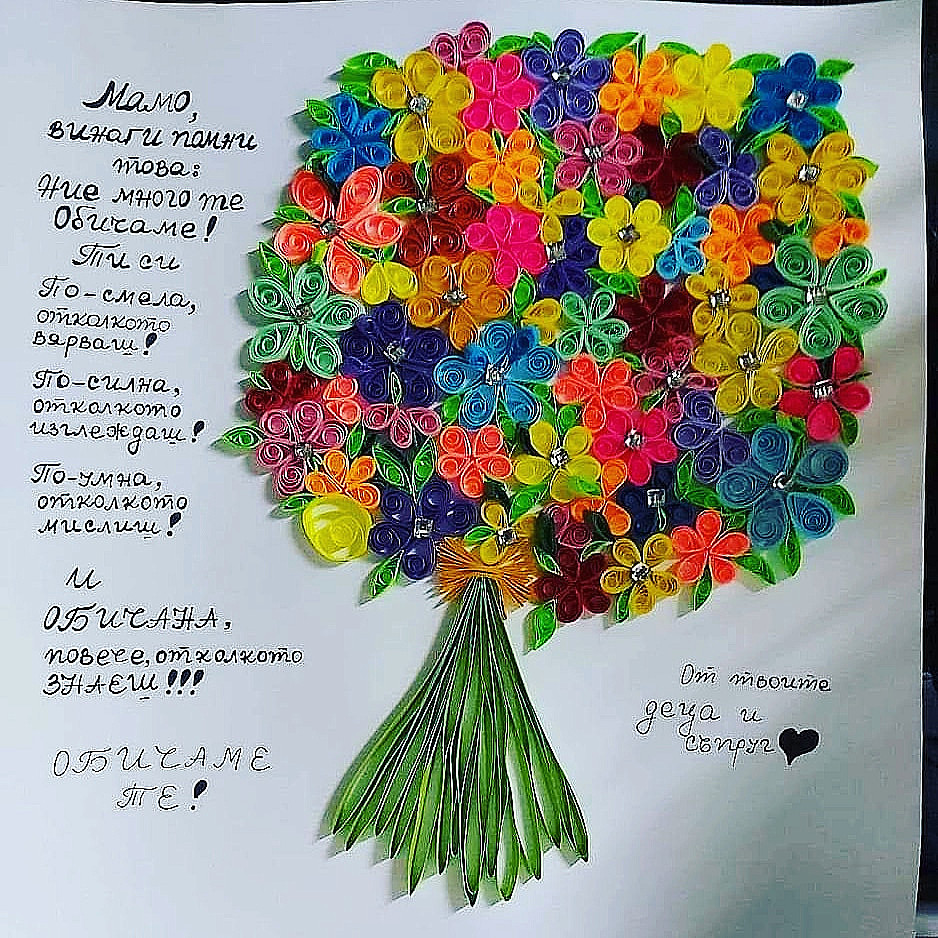 Мамо,
винаги помни
това:
Ние много те
Обичаме!
Ти си
По-смела,
отколкото
вярваш!
По-силна,
отколкото
изглеждаш!
По-умна,
отколкото
мислиш!
И
ОБИЧАНА,
повече, отколкото
ЗНАЕШ!!!
ОБИЧАМЕ
ТЕ!
От твоите
деца и
съпруг